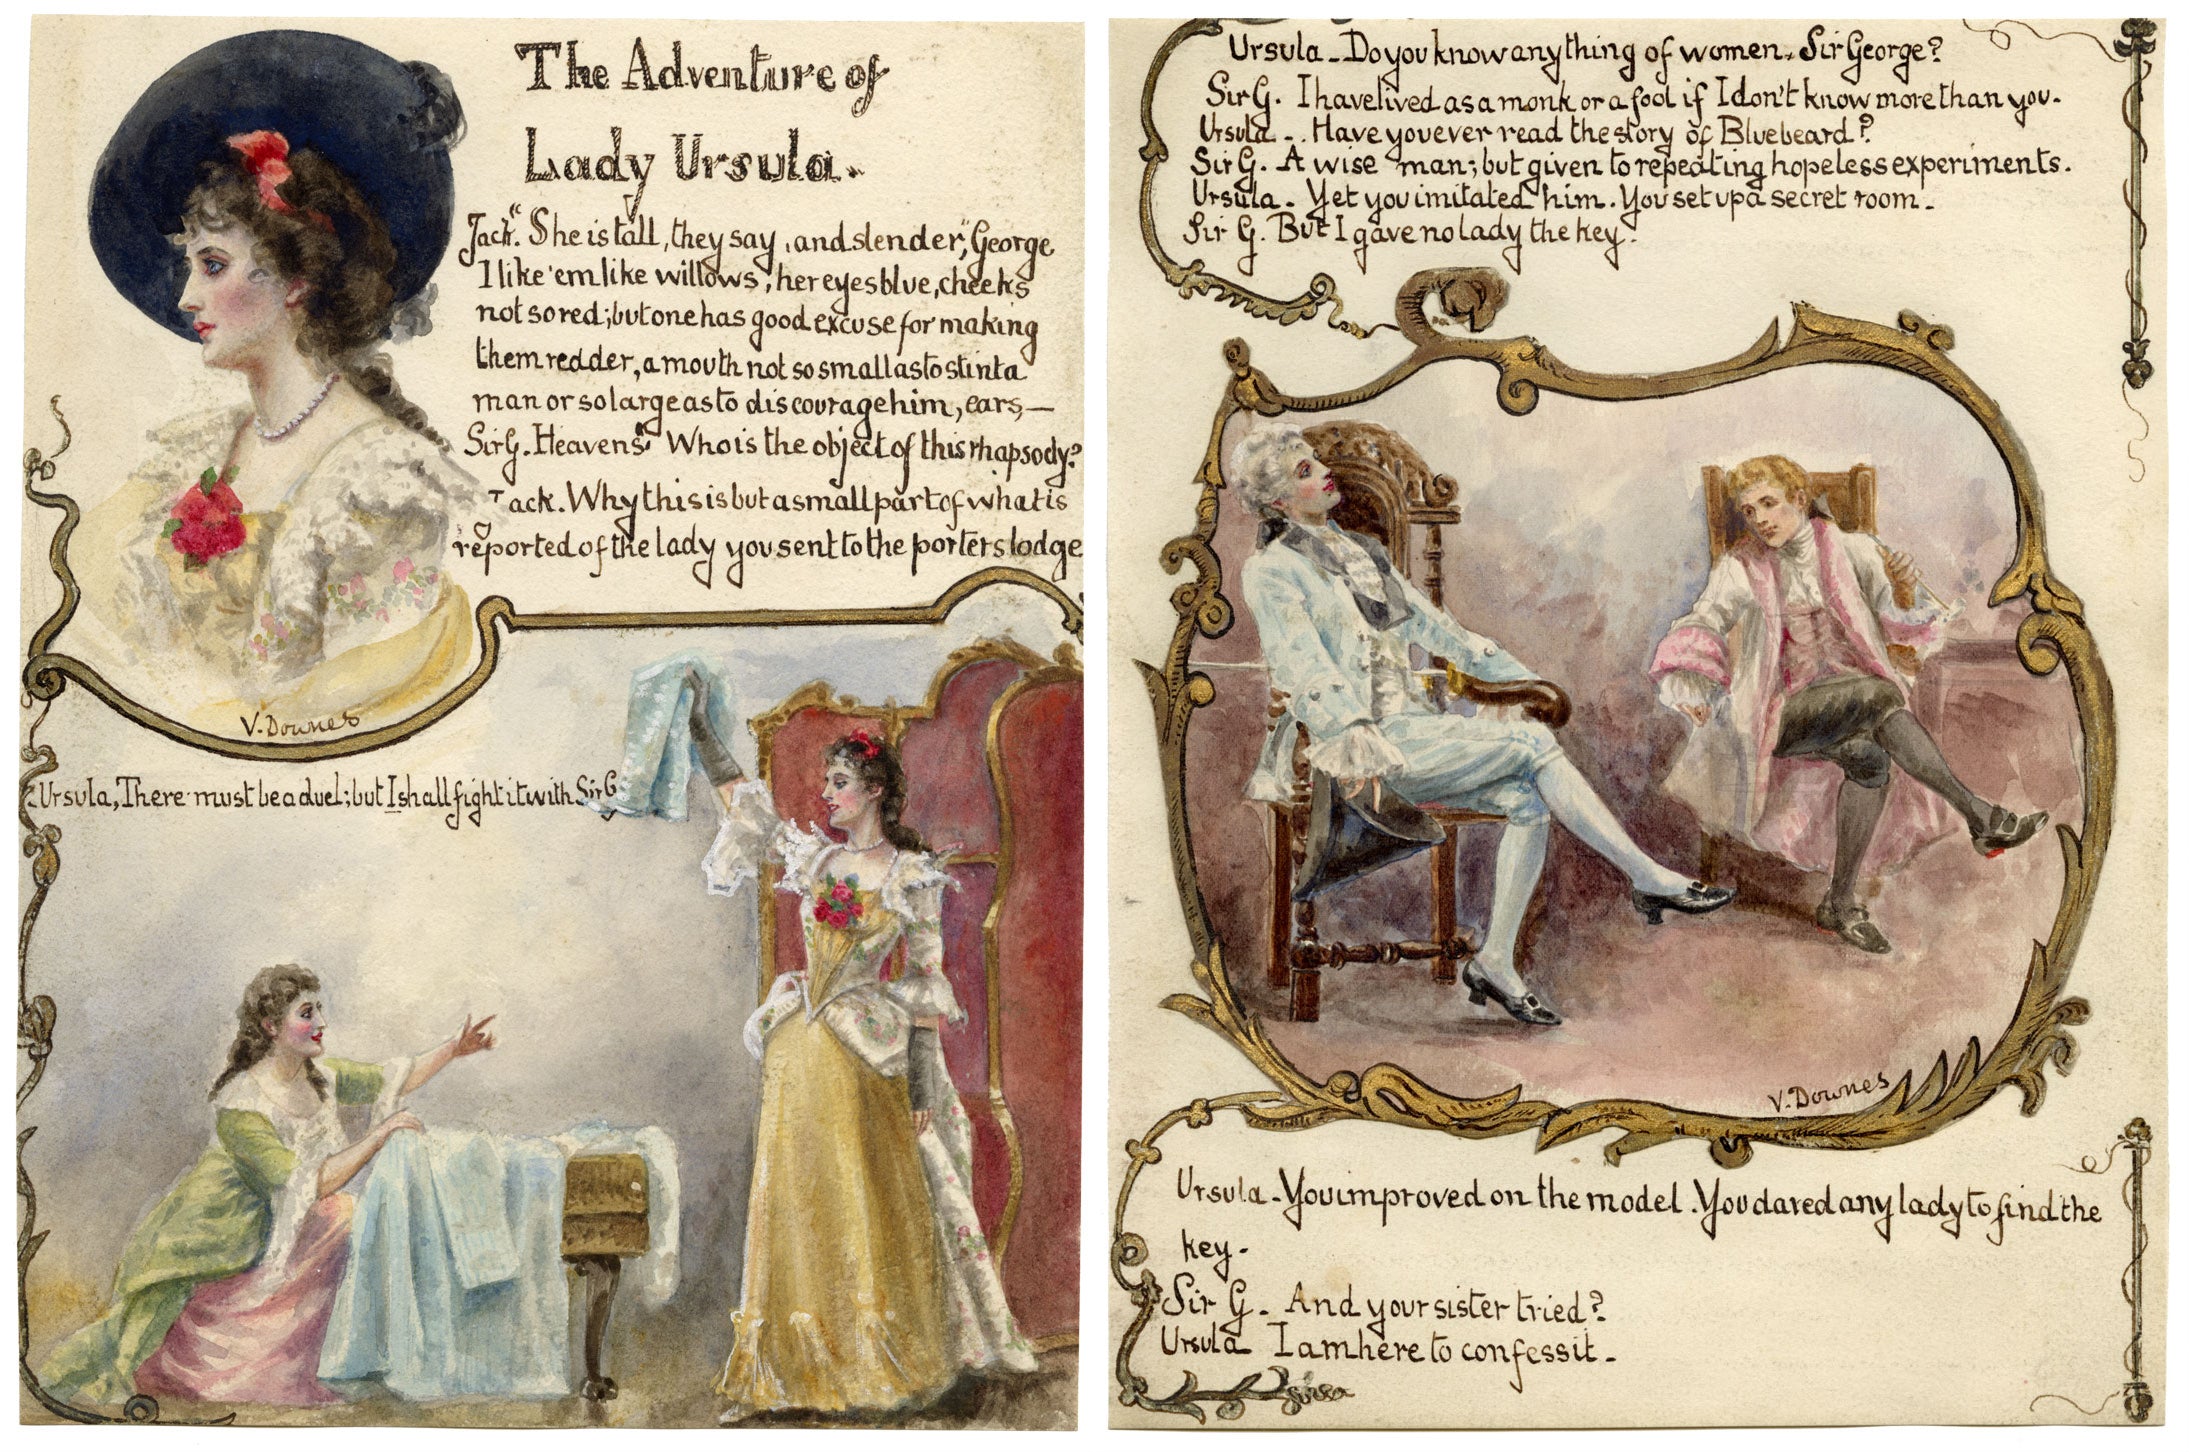 The Adventure of
Lady Ursula.
Jack. "She is tall, they say, and slender," George
I like 'em like willows, her eyes blue, cheeks
not so red; but one has good excuse for making
them redder, a mouth not so small as to stint a
man or so large as to discourage him, ears, —
Sir G. Heavens" Who is the object of this rhapsody?
Jack. Why this is but a small part of what is
reported of the lady you sent to the porters lodge
V. Downes
Ursula, There must be a duel; but I shall fight it with Sir G.
Ursula - Do you know anything of women, Sir George?
Sir G. I have lived as a monk or a fool if I don't know more than you.
Ursula - . Have you ever read the story of Bluebeard?
Sir G. A wise man; but given to repeating hopeless experiments.
Ursula - Yet you imitated him. You set up a secret room -
Sir G. But I gave no lady the key.
V. Downes
Ursula - You improved on the model. You dared any lady to find the
key -
Sir G - And your sister tried?
Ursula I am here to confess it -